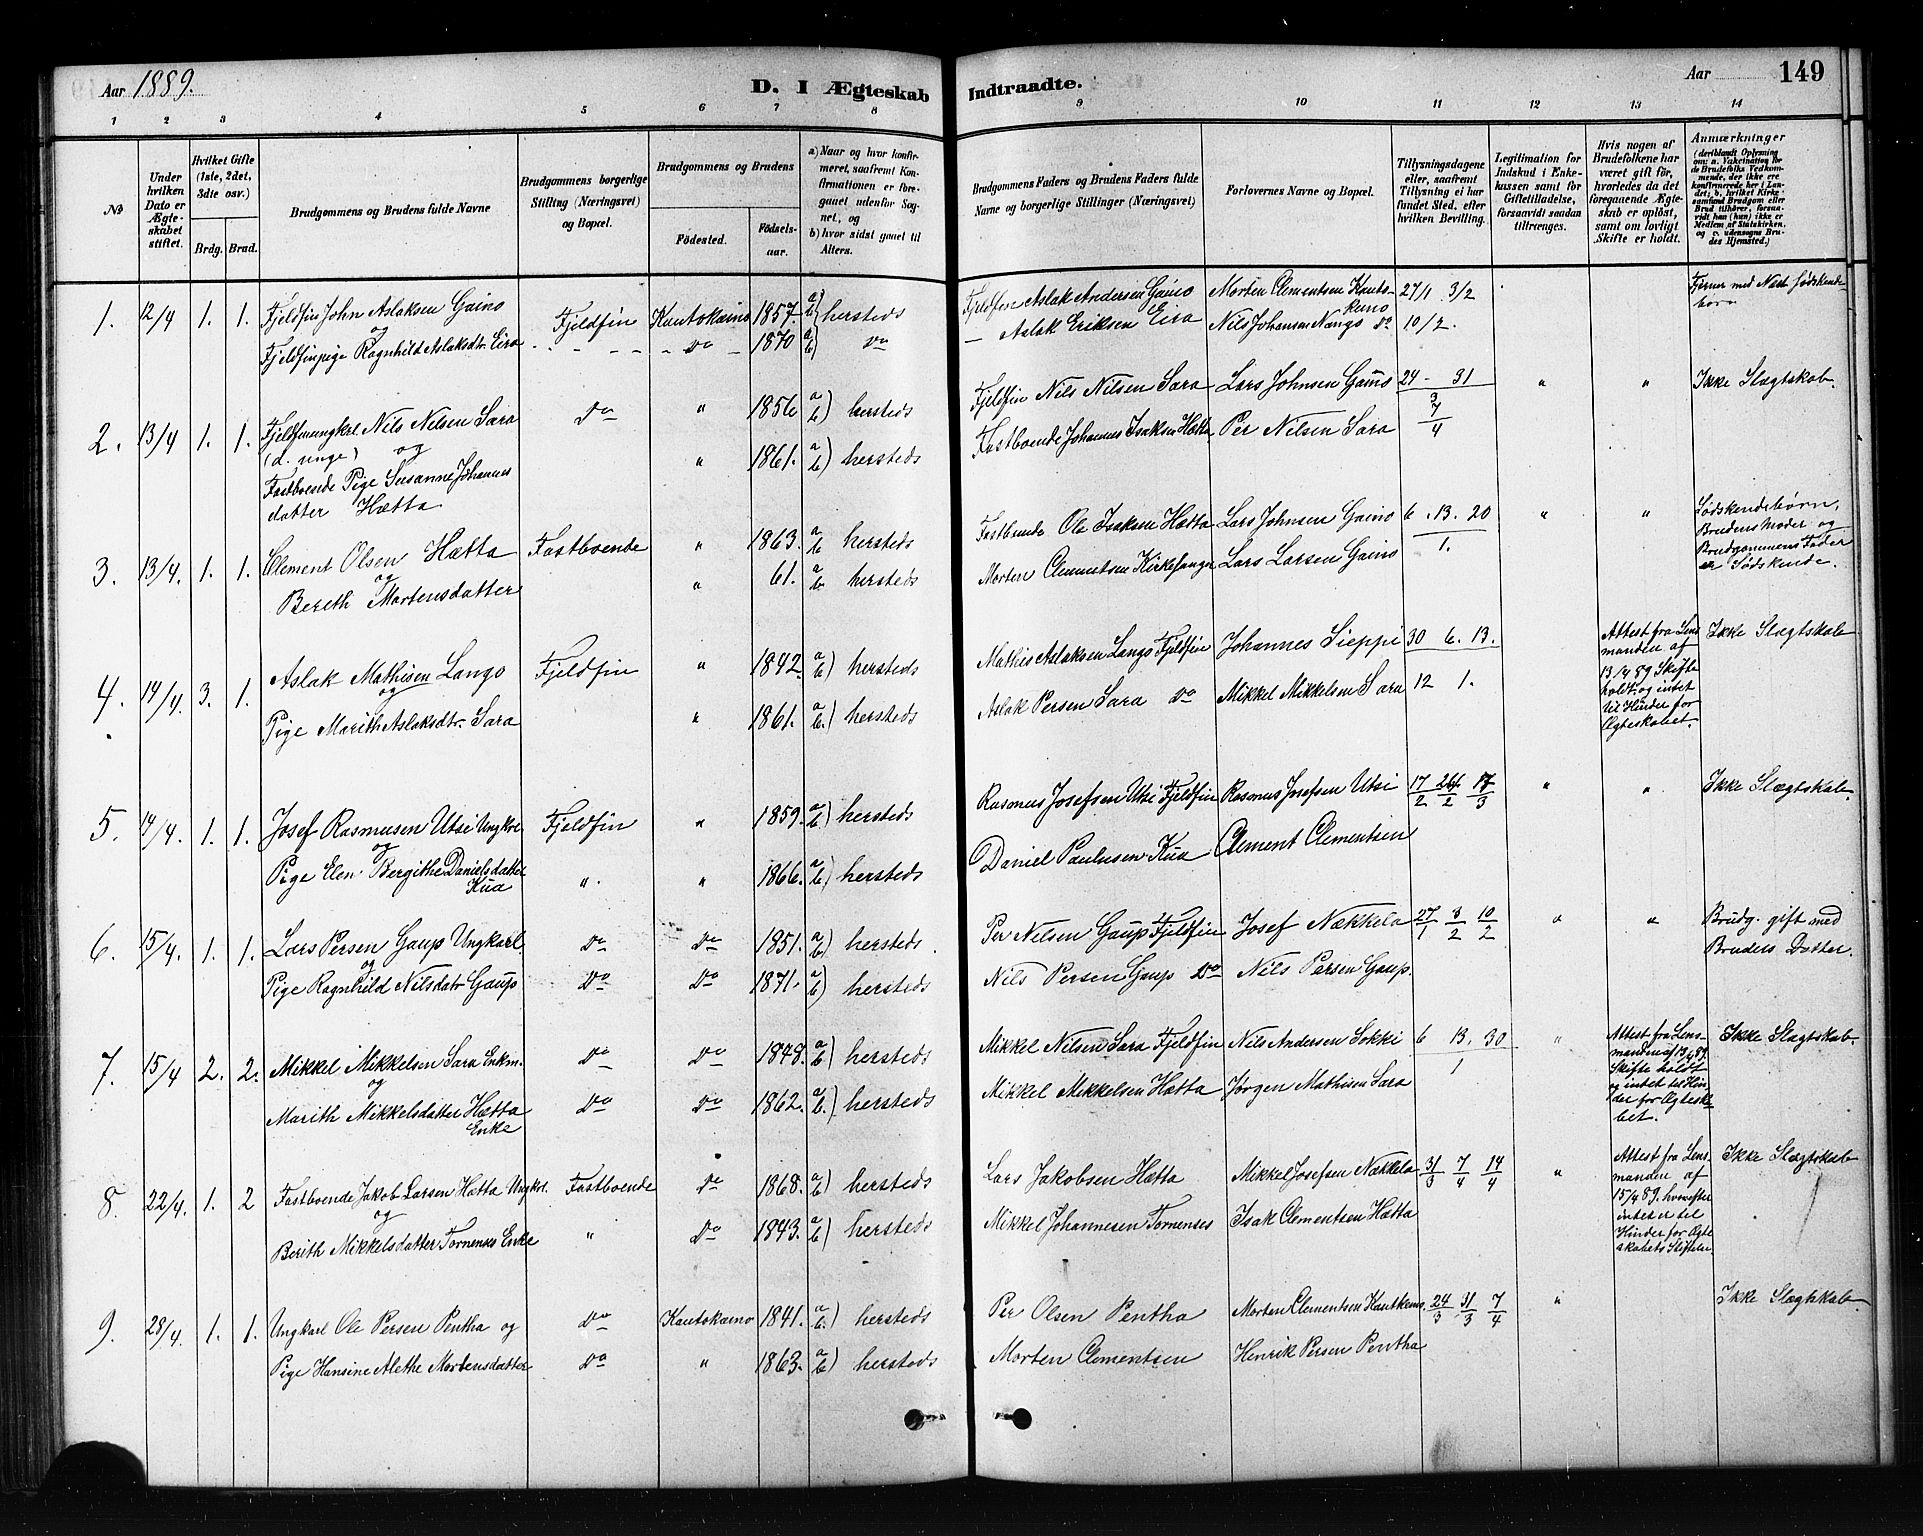 Aar 1889.
D. I Ægteskab Indtraadte.
Aar 149
1 2 3 4 5 6 7 8 9 10 11 12 13 14
No
Under hvilken Dato er Ægteskabet stiftet.
Hvilket Gifte (1ste, 2det, 3die osv.)
Brdg. Brud.
Brudgommens og Brudens fulde Navne
Brudgommens borgerlige Stilling (Næringsvei) og Bopæl.
Brudgommens og Brudens
Fødested.
Fødselsaar.
a) Naar og hvor konfirmeret, saafremt Konfirmationen er foregaaet udenfor Sognet, og
b) hvor sidst gaaet til Alters.
Brudgommens Faders og Brudens Faders fulde Navne og borgerlige Stillinger (Næringsvei)
Forlovernes Navne og Bopæl.
Tillysningsdagene eller, saafremt Tillysning ei har fundet Sted, efter hvilken Bevilling.
Legitimation for Indskud i Enkekassen samt for Giftetilladelse, forsaavidt saadan tiltrænges.
Hvis nogen af Brudefolkene har været gift før, hvorledes da det foregaaende Ægteskab er opløst, samt om lovligt Skifte er holdt.
Anmærkninger (deriblandt Oplysning om: a. Vakcination for de Brudefolks Vedkommende, der ikke ere konfirmerede her i Landet; b. hvilket Kirkesamfund Brudgom eller Brud tilhører, forsaavidt han (hun) ikke er Medlem af Statskirken, og c. udensogns Brudes Hjemsted.)
1. 12/4 1. 1. Fjeldfin John Aslaksen Gaino Fjeldfin Kautokæino 1857. a) b) hersteds Fjeldfin Aslak Andersen Gaino Morten Clementsen Kautokeino 27/1 3/2 Fjerner med Næst Sødskendebørn
og
Fjeldfinpige Ragnhild Aslaksdtr. Eira Do 1870 a) b) Do — Aslak Eriksen Eira Nils Johansen Nango Do 10/2.
2. 13/4 1. 1. Fjeldfinungkrl Nils Nilsen Sara Do " 1856 a b) hersteds Fjeldfin Nils Nilsen Sara Lars Johnsen Gaino 24 - 31 / 3 " " Ikke Slægtskab.
(d. unge) og
Fastboende Pige Susanne Johannesdatter Hætta " 1861. a b) hersteds Fastboende Johannes Isaksen Hætta Per Nilsen Sara 7/4
3. 13/4. 1. 1. Clement Olsen Hætta Fastboende " 1863. a b hersteds Fastboende Ole Isaksen Hætta Lars Johnsen Gaino 6. 13. 20 / 1. " " Sødskendebørn, Brudens Moder og Brudgommens Fader er Sødskende.
og
Bereth Mortensdatter " 61. a b hersteds Morten Clementsen Kirkesanger Lars Larsen Gaino
4. 14/4. 3. 1. Aslak Mathisen Lango Fjeldfin " 1842. a b) hersteds Mathis Aslaksen Lango Fjeldfin Johannes Sieppi 30 6. 13. Attest fra Lensmanden af 13/4 89 Skifte holdt og intet til Hinder for Ægteskabet. Ikke Slægtskab
og
Pige Marith Aslaksdtr. Sara " 1861. a b.) hersteds Aslak Persen Sara Do Mikkel Mikkelsen Sara 12 1.
5. 14/4. 1. 1. Josef Rasmusen Utsi Ungkrl Fjeldfin " 1859. a b) hersteds Rasmus Josefsen Utsi Fjeldfin Rasmus Josefsen Utsi 17/2 24/2 17/3 " " Ikke Slægtskab.
og
Pige Elen Bergithe Danielsdatter Kua " " 1866. a b) hersteds Daniel Paulusen Kua Clement Clementsen
6. 15/4. 1. 1. Lars Persen Gaup Ungkarl. Do Do 1851. a b) hersteds. Per Nilsen Gaup Fjeldfin Josef Nækkela 27/1 3/2 10/2 " " Brudg. gift med Broders Datter.
og
Pige Ragnhild Nilsdatr Gaup Do Do 1871. a b) hersteds Nils Persen Gaup Do Nils Persen Gaup.
7. 15/4 2. 2. Mikkel Mikkelsen Sara Enkm. Do Do 1848. a b) hersteds Mikkel Nilsen Sara Fjeldfin Nils Andersen Sokki 6 13. 30 / 1 " Attest fra Lensmanden af 13/4 89. Skifte holdt og intet til Hinder for Ægteskabet. Ikke Slægtskab.
og
Marith Mikkelsdatter Hætta Enke Do Do 1862. a b.) hersteds Mikkel Mikkelsen Hætta Jørgen Mathisen Sara
8. 22/4. 1. 2 Fastboende Jakob Larsen Hætta Ungkrl. Fastboende Do 1868. a b) hersteds Lars Jakobsen Hætta Mikkel Josefsen Nækkela 31/3 7/4 14/4 " Attest fra Lensmanden af 15/4 89. hvorefter intet er til Hinder for Ægteskabets Stiftelse. Ikke Slægtskab
og
Berith Mikkelsdatter Tornenses Enke " Do 1843. a b) hersteds Mikkel Johannesen Tornenses Isak Clementsen Hætta
9. 28/4. 1. 1. Ungkarl Ole Persen Pentha og Do Kautokæino 1841. a b.) hersteds Per Olsen Pentha Morten Clementsen Kautkeino 24/3 31/3 7/4 " Ikke Slægtskab.
Pige Hansine Alethe Mortensdatter Do " 1863. a b) hersteds Morten Clementsen Henrik Persen Pentha